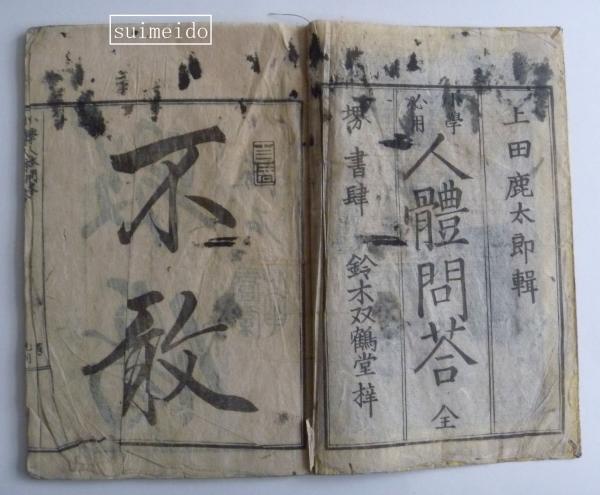 suimeido
上田鹿太郎輯
小學
必用
人體問荅 全
堺 書肆
鈴木双鶴堂梓
不敢